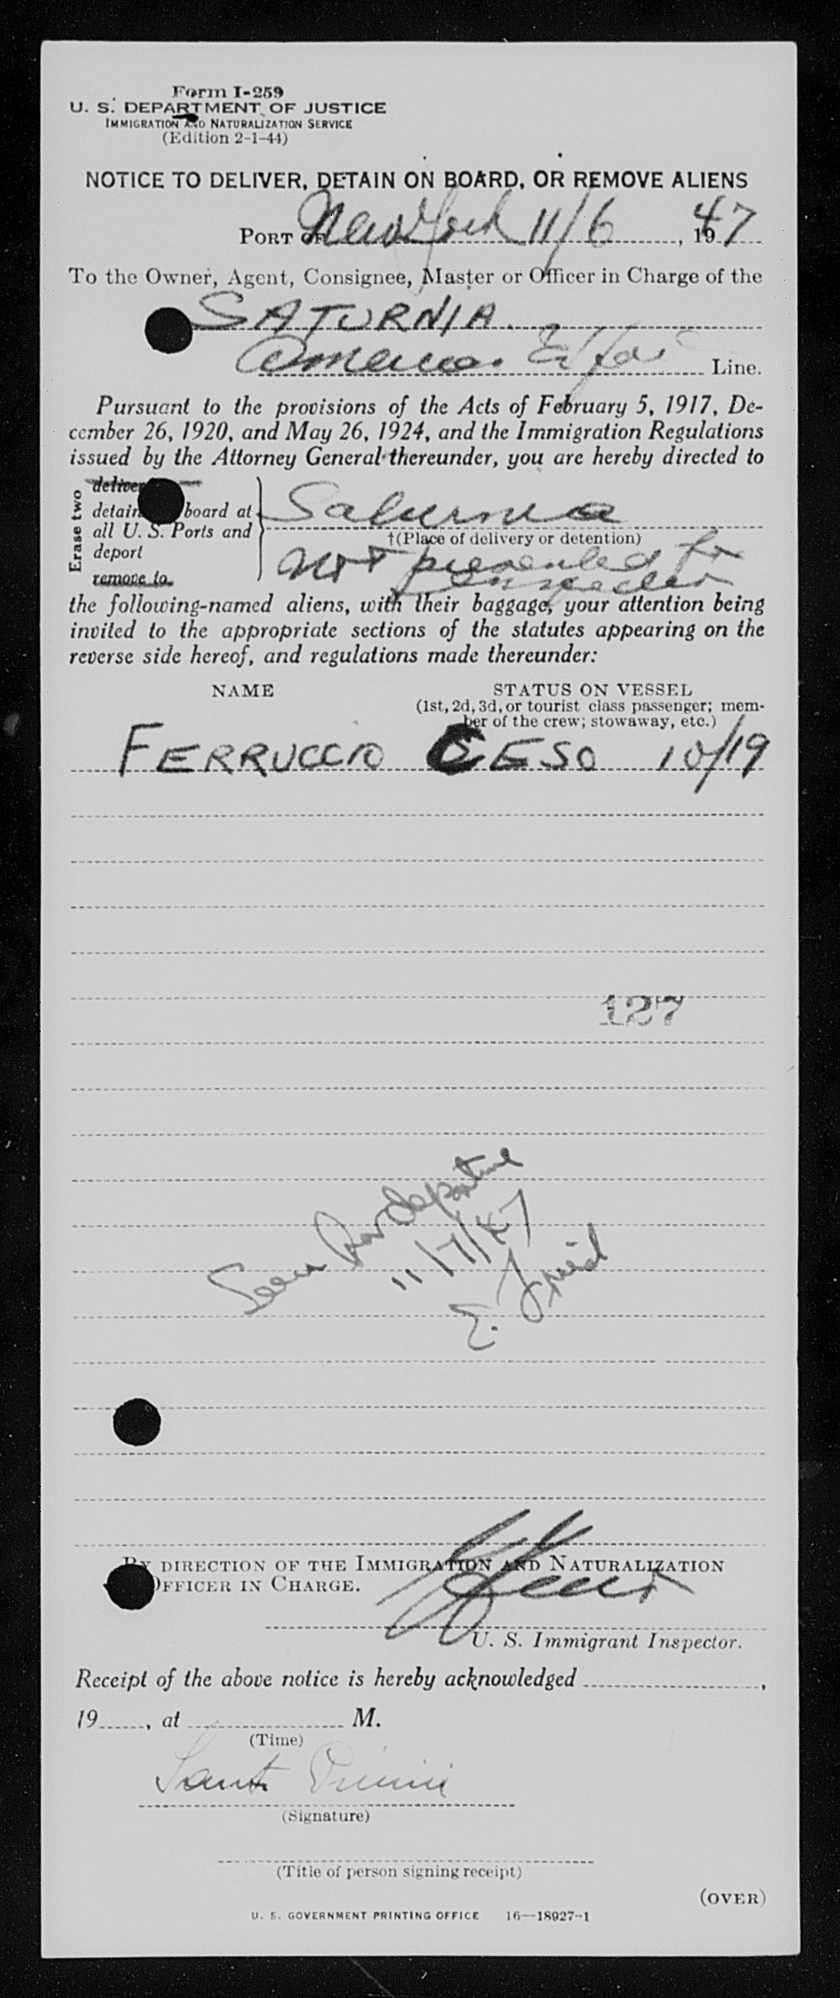 Form I-259
U. S. DEPARTMENT OF JUSTICE
IMMIGRATION AND NATURALIZATION SERVICE
(Edition 2-1-44)
NOTICE TO DELIVER, DETAIN ON BOARD, OR REMOVE ALIENS
PORT OF New York 11/6, 1947
To the Owner, Agent, Consignee, Master or Officer in Charge of the
SATURNIA
American Line.
Pursuant to the provisions of the Acts of February 5, 1917, De-
cember 26, 1920, and May 26, 1924, and the Immigration Regulations
issued by the Attorney General thereunder, you are hereby directed to
Erase two
deliver
detain board at Saturnia
all U. S. Ports and †(Place of delivery or detention)
deport not presented for
remove to inspection
the following-named aliens, with their baggage, your attention being
invited to the appropriate sections of the statutes appearing on the
reverse side hereof, and regulations made thereunder:
NAME STATUS ON VESSEL
(1st, 2d, 3d, or tourist class passenger; mem-
ber of the crew; stowaway, etc.)
FERRUCCIO CESO 10/19
127
Seen for departure
11/7/47
E. Fried
BY DIRECTION OF THE IMMIGRATION AND NATURALIZATION
OFFICER IN CHARGE.
U. S. Immigrant Inspector.
Receipt of the above notice is hereby acknowledged ,
19 , at M.
(Time)
(Signature)
(Title of person signing receipt)
(OVER)
U. S. GOVERNMENT PRINTING OFFICE 16—18927-1